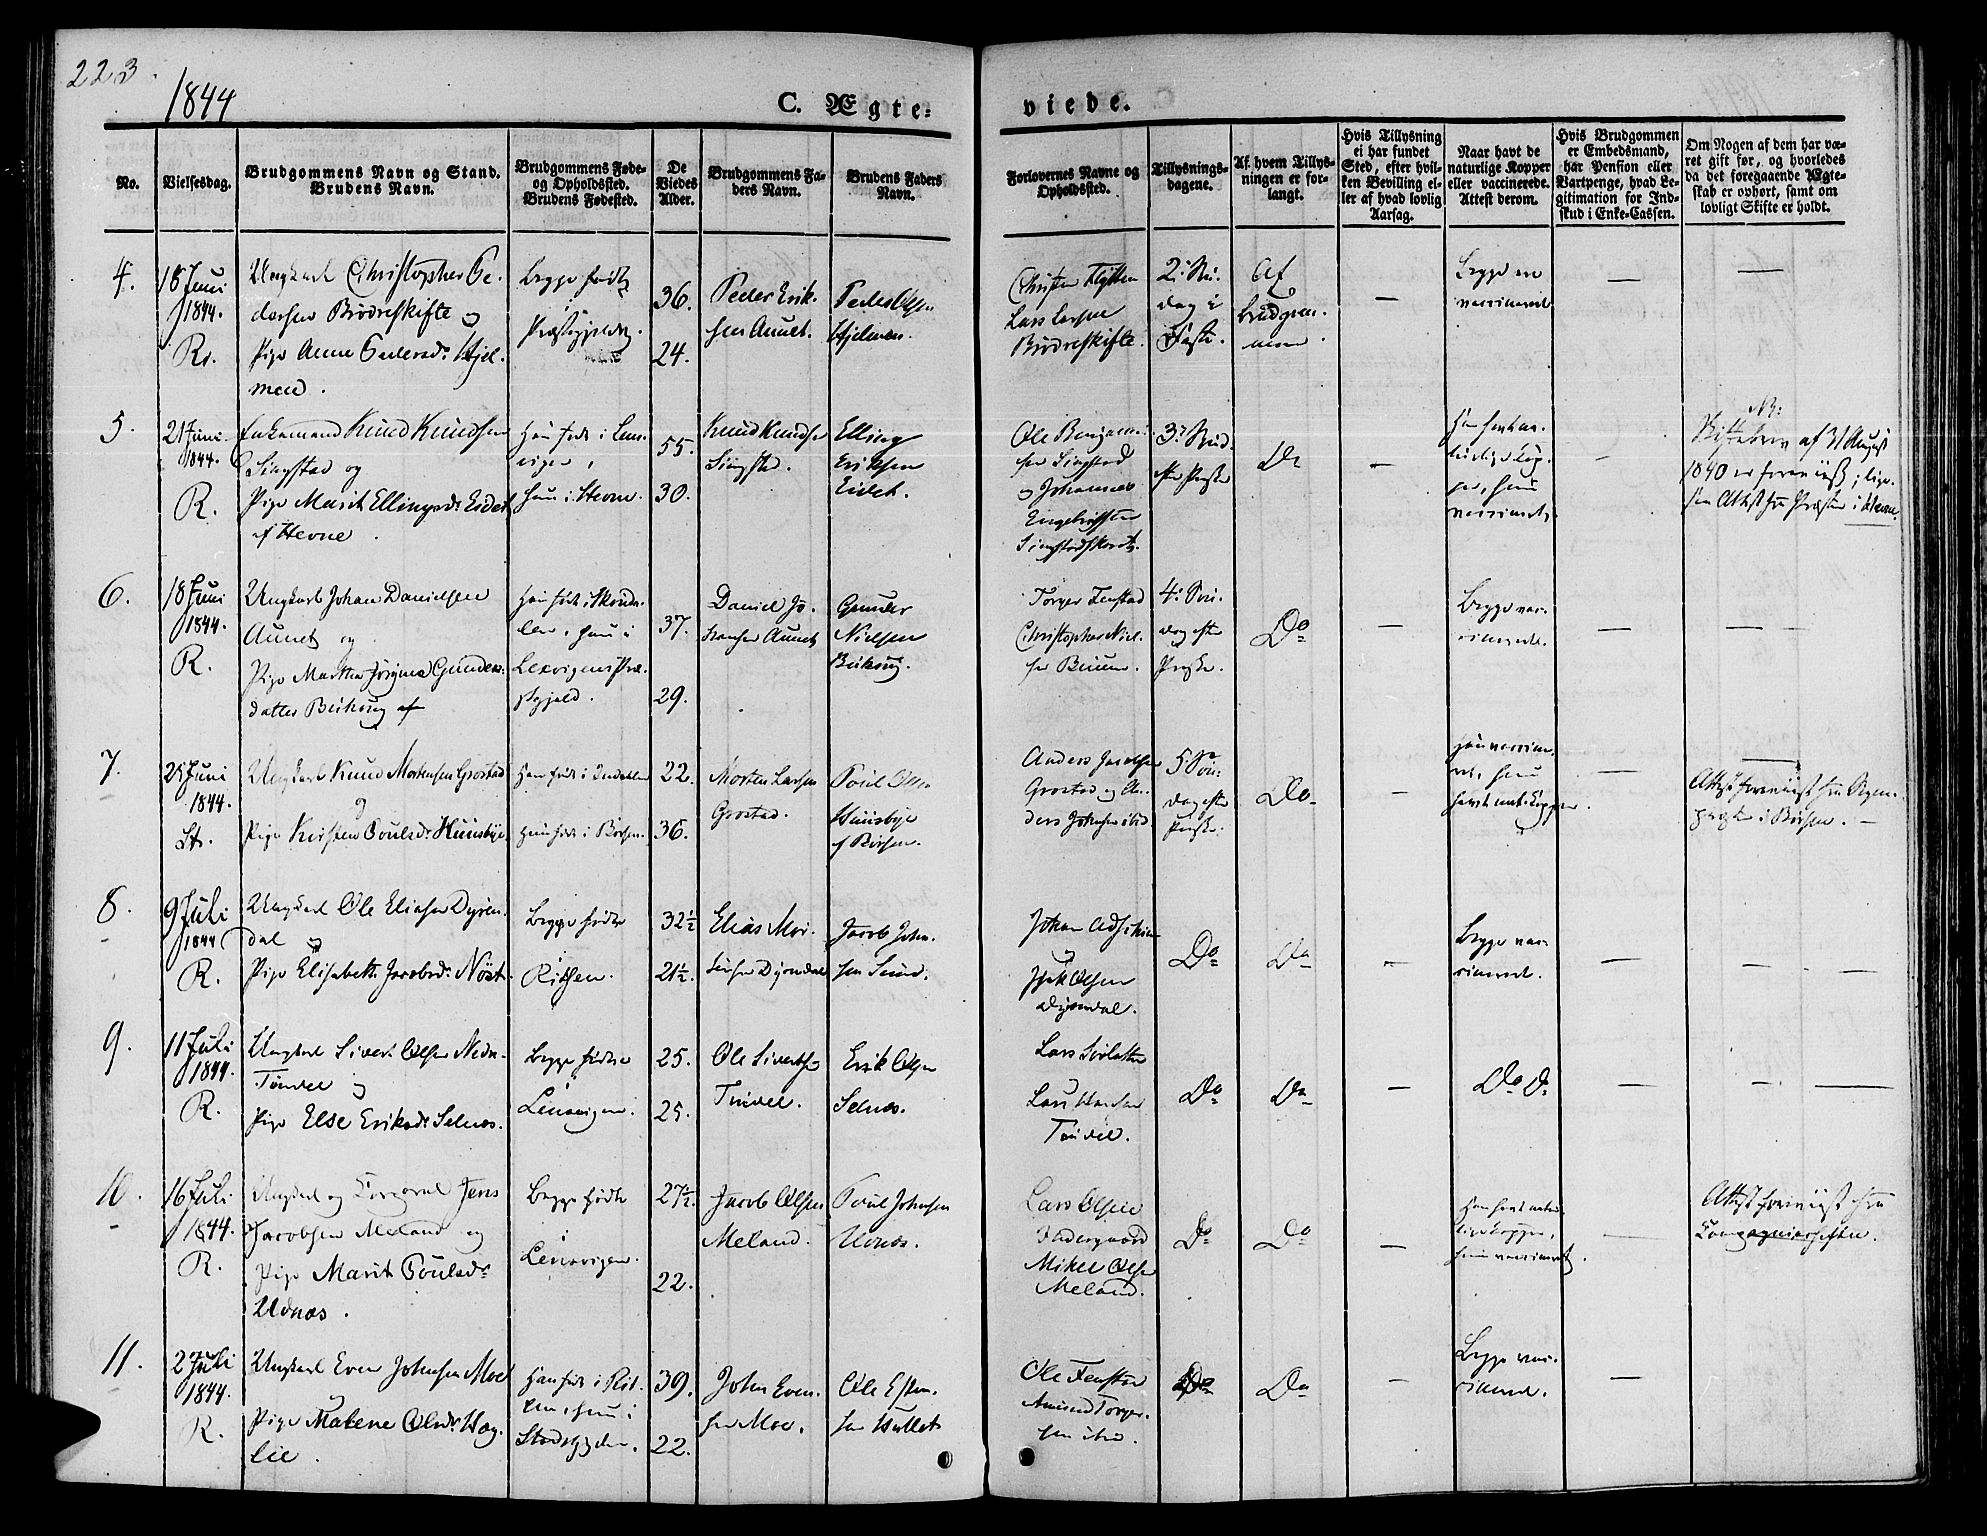 223.
1844
C. Ægte=
viede.
No.
Vielsesdag.
Brudgommens Navn og Stand.
Brudens Navn.
Brudgommens Føde-
og Opholdssted.
Brudens Fødested.
De
Viedes
Alder.
Brudgommens Fa-
ders Navn.
Brudens Faders
Navn.
Forlovernes Navne og
Opholdssted.
Tillysnings-
dagene.
Af hvem Tillys-
ningen er for-
langt.
Hvis Tillysning
ei har fundet
Sted, efter hvil-
ken Bevilling el-
ler af hvad lovlig
Aarsag.
Naar havt de
naturlige Kopper
eller vaccinerede.
Attest derom.
Hvis Brudgommen
er Embedsmand,
har Pension eller
Vartpenge, hvad Le-
gitimation for Ind-
skud i Enke-Cassen.
Om Nogen af dem har væ-
ret gift før, og hvorledes
da det foregaaende Ægte-
skab er ophørt, samt om
lovligt Skifte er holdt.
4.
18 Juni
1844.
Ungkarl Christopher Pe-
dersen Brødreskifte og
Pige Anne Pedersdr Hjel-
men.
Begge fødte
i
Præstegjeldet
36.
24.
Peder Erik-
sen Aunet.
Peder Olsen
Hjelmen.
Lars Larsen
Brødreskifte.
2. Søn-
dag i
Faste.
Af
Brudgom-
men.
—
Begge ere
vaccineret.
—
—
5.
21 Juni
1844.
R.
Enkemand Knud Knudsen
Singstad og
Pige Marit Ellingsdr Eidet
af Hevne.
Han født i Lens-
vigen,
hun i Hevne.
55.
30.
Knud Knudsen
Singstad.
Elling
Eriksen
Eidet.
Ole Benjamin-
sen Singstad
og Johannes
Engebrigtsen
3. Søn-
efter Paaske
Do
—
Han havt na-
turlige Kop-
per, hun
vaccineret.
—
NB:
Skiftebrev af 31 August
1840 er foreviist; lige-
saa Attest fra Præsten i Hevne.
6.
18 Juni
1844.
R.
Ungkarl Johan Danielsen
Aunet og
Pige Martha Jørgine Gunders-
datter
Han født i
hun i
Lexvigens Præ-
stegjeld.
37.
29.
Daniel Jo-
hansen Aunet
Gunder
Nielsen
Torger Fenstad
Christopher Niel-
sen
4. Søn-
dag efter
Paaske.
Do
—
Begge vac-
cineret.
—
—
7.
25 Juni
1844.
St.
Ungkarl Knud Mortensen Grostad
og
Pige Kirsten Poulsdr Huusbye
Han født i
hun født i Børsen.
22.
36.
Morten Larsen
Grostad.
Poul
Huusbye
af Børsen.
Anders Jacobsen
Grostad og An-
ders Johnsen ibid
5 Søn-
dag efter
Paaske.
Do
—
Han vaccine-
ret, hun
havt nat: Kopper.
—
Attest foreviist fra Sogne-
præsten i Børsen.—
8.
9 Juli
1844
R.
Ungkarl Ole Eliasen Dyren-
dal og
Pige Elisabeth Jacobsdr Nøst.
Begge fødte
i
Rissen.
32½
21½.
Elias Mor-
tensen Dyrendal
Jacob John-
sen Sund.
Johan
og
Olsen
Dyrendal.
Do
Do
—
Begge vac-
cineret.
—
—
9.
11 Juli
1844.
R.
Ungkarl Sivert Olsen Nedr-
Tøndel og
Pige Else Eriksdr Selnæs.
Begge fødte
i
Lensvigen.
25.
25.
Ole Sivertsen
Tøndel.
Erik Olsen
Selnæs.
Lars
Lars Hansen
Tøndel.
Do
Do
—
Do Do
—
—
10.
16 Juli
1844.
R.
Ungkarl og Corporal Jens
Jacobsen Meland og
Pige Marit Poulsdr
Udnæs.
Begge fødte
i
Lensvigen.
27½
22.
Jacob Olsen
Meland.
Poul Johnsen
Udnæs.
Lars Olsen
Indergaard
Mikel Olsen
Meland.
Do
Do
—
Han havt natur-
lige Kopper,
hun vaccineret.
—
Attest foreviist fra
Compagniechefen.
11.
2 Juli
1844.
R.
Ungkarl Even Johnsen Moe
og
Pige Malene Olsdr Hæg-
lie.
Han født i Ris-
sen, hun i
Stadsbygden.
39.
22.
John Even-
sen Moe.
Ole Esten-
sen
Ole Fenstad
Amund Torger-
sen ibid.
Do
Do
—
Begge vac-
cineret.
—